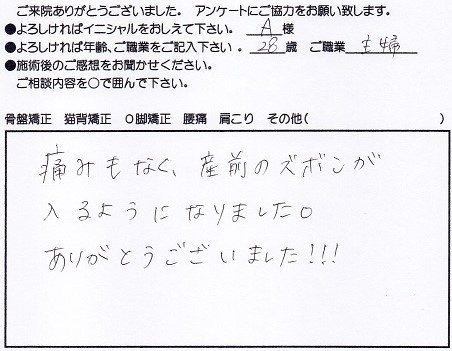 ご来院ありがとうございました。 アンケートにご協力をお願い致します。
●よろしければイニシャルをおしえて下さい。 A 様
●よろしければ年齢、ご職業をご記入下さい 。 28 歳 ご職業 主婦
●施術後のご感想をお聞かせください。
ご相談内容を○で囲んで下さい。
骨盤矯正 猫背矯正 O脚矯正 腰痛 肩こり その他( )
痛みもなく、産前のズボンが
入るようになりました。
ありがとうございました!!!